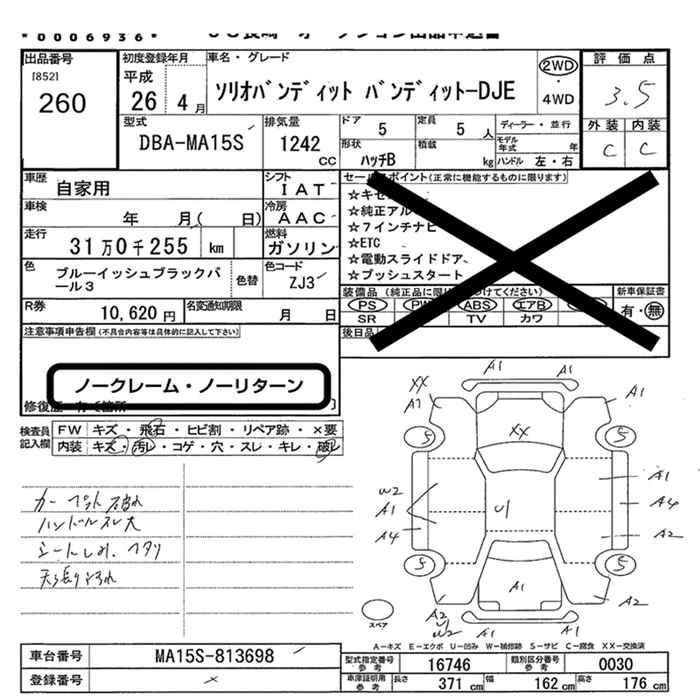 *0006936*
出品番号 初度登録年月 車名・グレード 2WD 評価点
[852] 平成 4WD
260 26 4月 ソリオバンディット バンディットーDJE 3.5
型式 排気量 ドア 定員 ディーラー・並行 外装 内装
DBA-MA15S 1242 cc 5 5人 モデル年式 年 C C
形状 積載
ハッチB kg ハンドル 左・右
車歴 シフト セールスポイント(正常に機能するものに限ります)
自家用 IAT
車検 冷房 ☆純正アル
年 月( 日) AAC ☆7インチナビ
走行 燃料 ☆ETC
31万0千255 km ガソリン ☆電動スライドドア、
色 色替 色コード ☆プッシュスタート
ブルーイッシュブラックパール3 ZJ3 装備品 新車保証書
R券 名変通知期限 PS ABS エアB 有・無
10,620円 月 日 SR TV カワ
注意事項申告欄(不具合内容等は具体的に記入して下さい) 後日品
ノークレーム・ノーリターン
検査員記入欄 FW キズ・飛石・ヒビ割・リペア跡・×要
内装 キズ・汚レ・コゲ・穴・スレ・キレ・破レ
ハンドルスレ大
A1 A1
XX A1 A1
S S
XX
W2 A1 A4 U1 A1 A4 A2
S S
A1
A2 W2 A1 A2
スペア
A-キズ E-エクボ U-凹み W-補修跡 S-サビ C-腐食 XX-交換済
車台番号 MA15S-813698 型式指定番号 参考 16746 類別区分番号 参考 0030
登録番号 車庫証明用 参考 長さ 371cm 幅 162cm 高さ 176cm